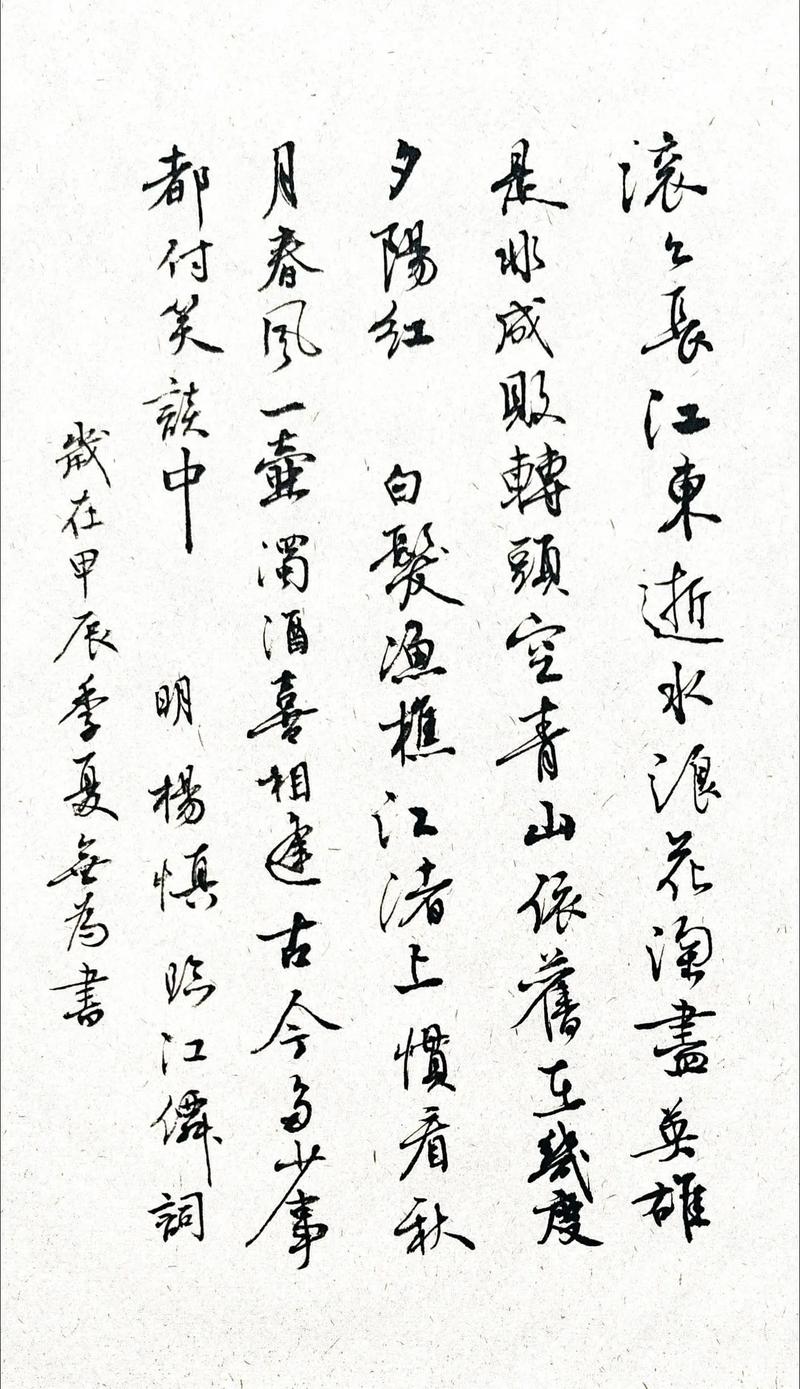 滚々長江東逝水浪花淘盡英雄
是非成敗轉頭空青山依舊在幾度
夕陽紅 白髮漁樵江渚上慣看秋
月春風一壺濁酒喜相逢古今多少事
都付笑談中 明楊慎臨江僊詞
歲在甲辰季夏無為書